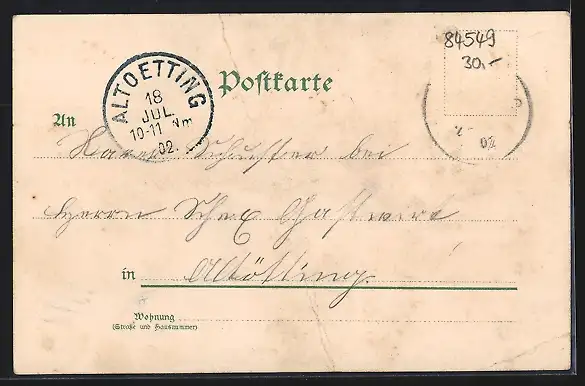 84549
30.-
Postkarte
ALTOETTING
18
JUL.
10-11 Nm
02.
02
An
Schuster bei
Herrn Gastwirt
in Altötting.
Wohnung
(Straße und Hausnummer)